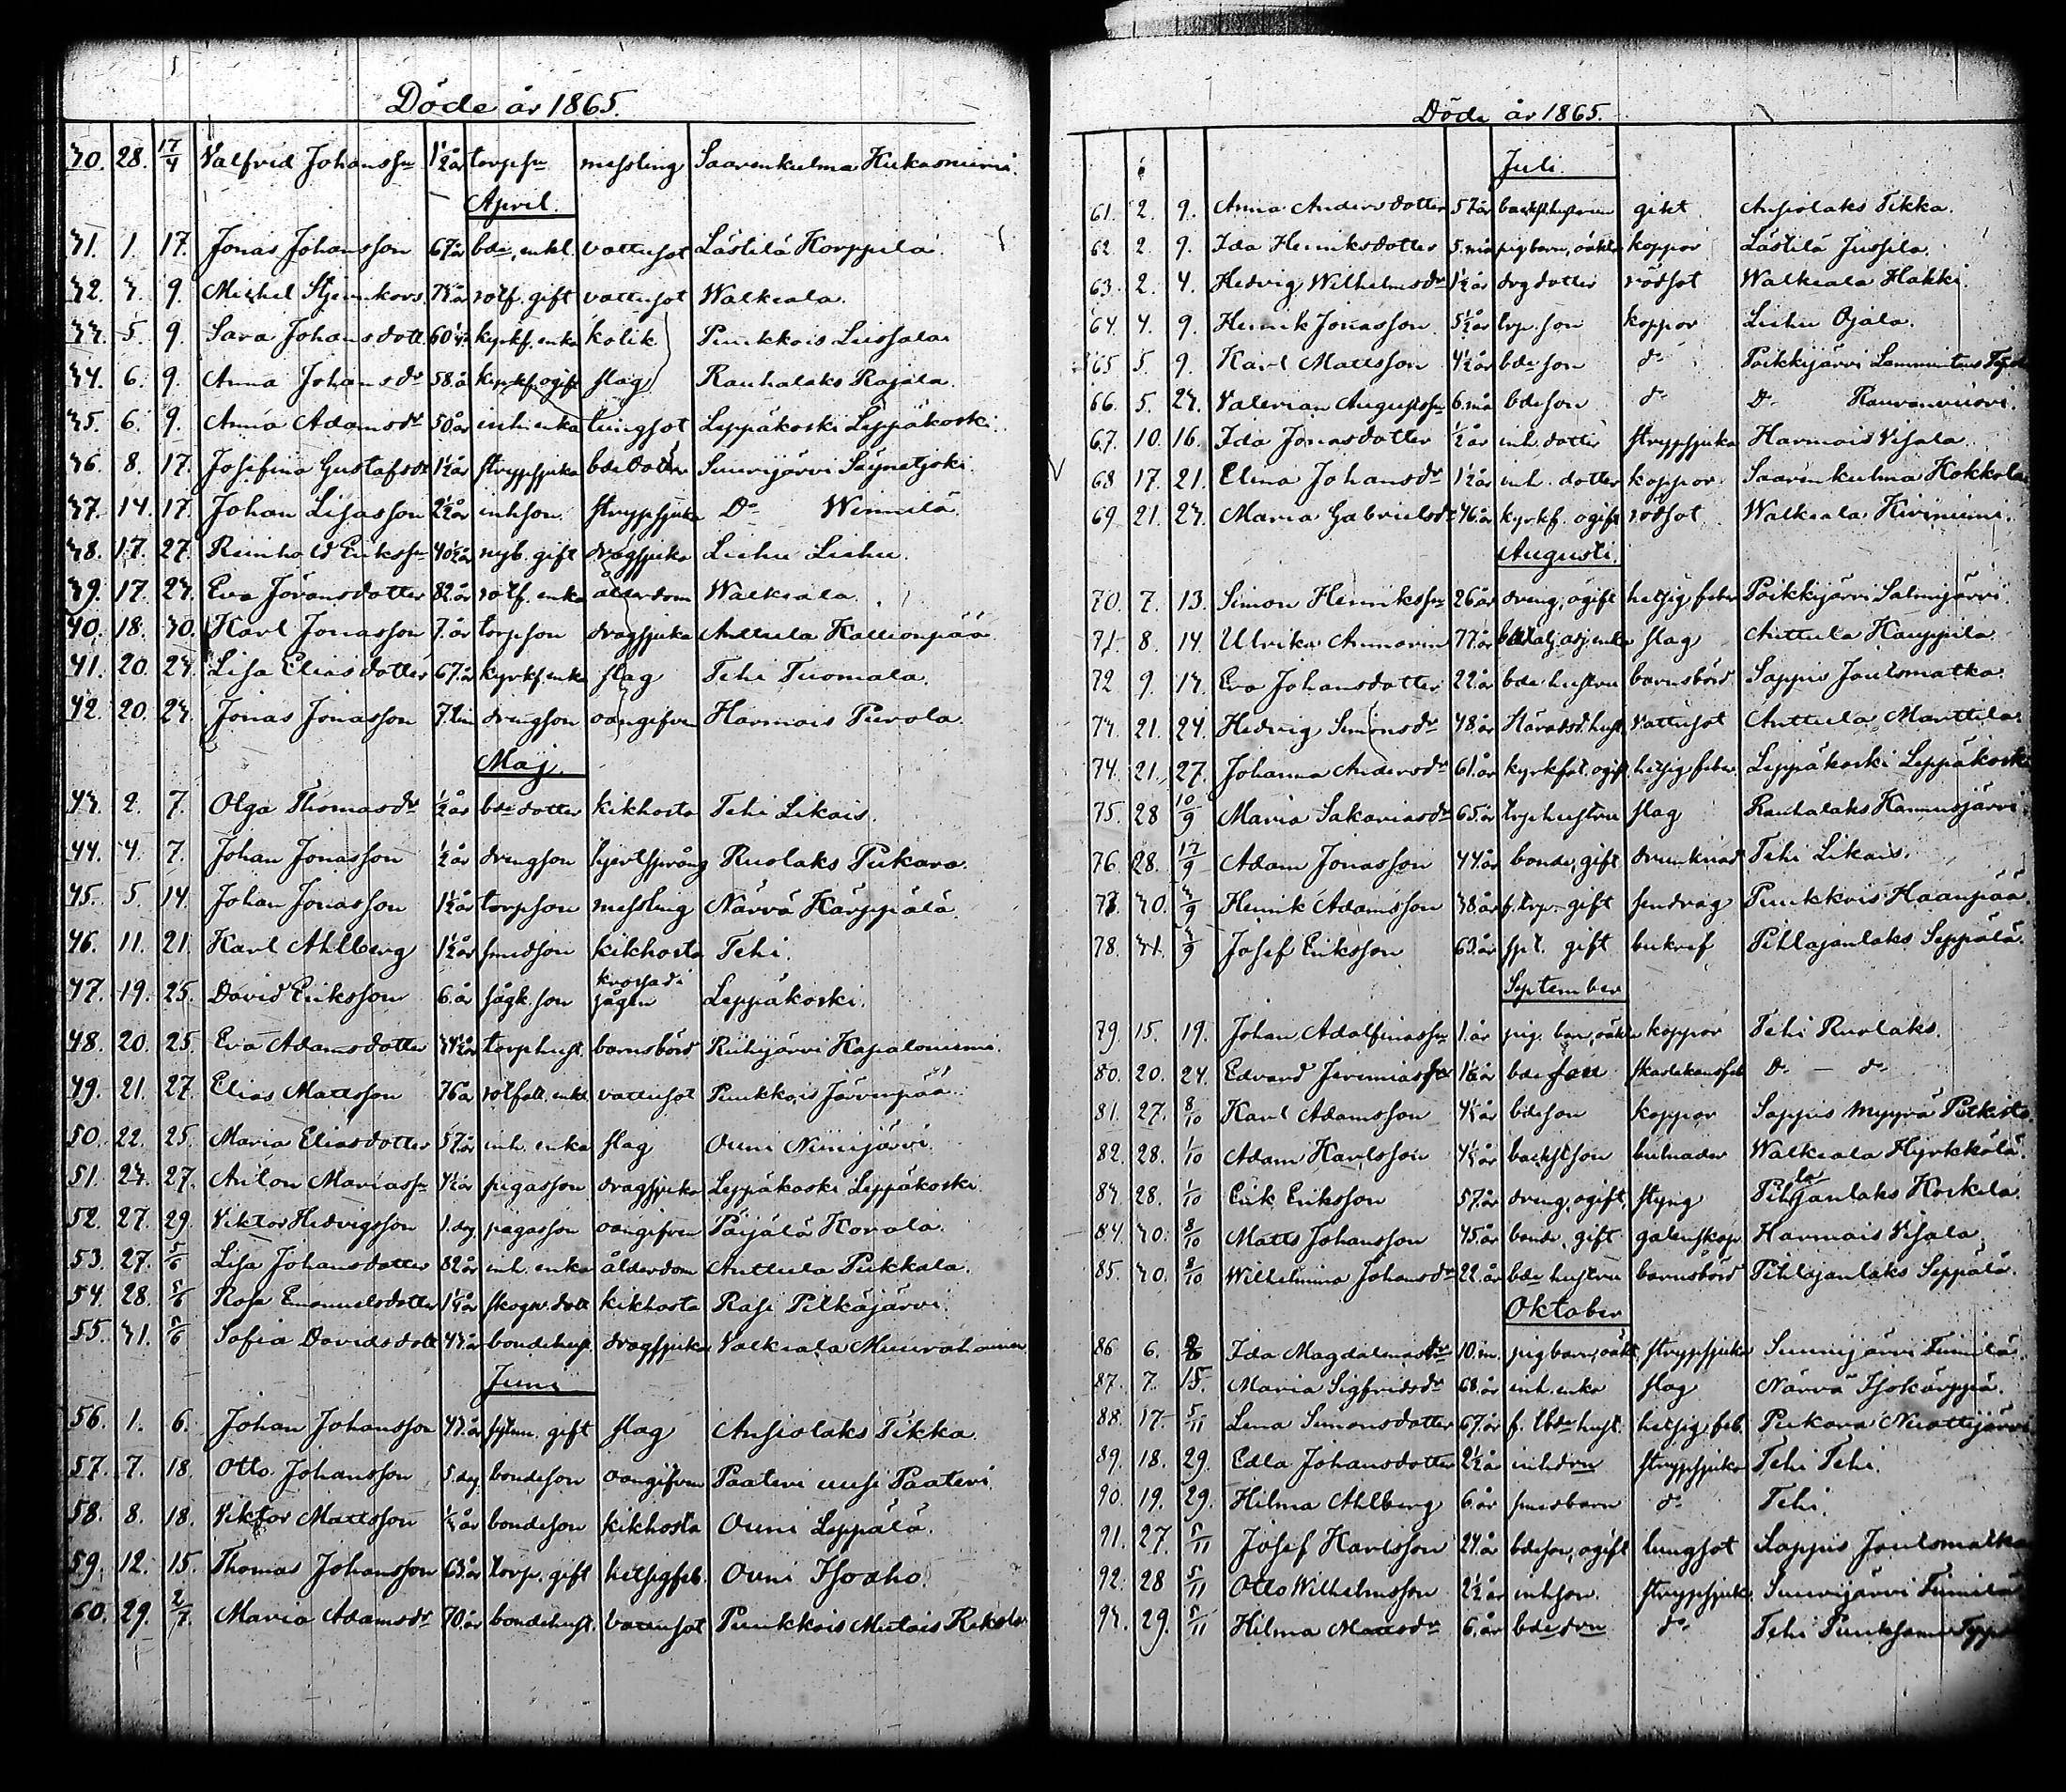 Döde år 1865.
30. 28. 17/4 Valfrid Johanss:n 1½ år torps:n messling Saarenkulma Hukasniemi.
April.
31. 1. 17. Jonas Johansson 67 år bde, enkl. vattusot Lästilä Korppila.
32. 3. 9. Michel 73 år rotf. gift vattusot Walkeala.
33. 5. 9. Sara Johansdott. 60 år kyrkf. enka kolik Puukkois Liusala.
34. 6. 9. Anna Johansdr 58 år kyrkf. ogift slag Rauhalaks Rajala.
35. 6. 9. Anna Adamsdr 50 år inh. enka lungsot Leppäkoski Leppäkoski.
36. 8. 17. Josefina Gustafsdr 1½ år strypsjuka bdedotter Suurijärvi Säynetjoki.
37. 14. 17. Johan Lisasson 2½ år inhson. strypsjuka Do Winnilä.
38. 17. 27. Reinhold Erikss:n 40½ år nyb. gift dragsjuka Liehu Liehu.
39. 17. 23. Eva Jöransdotter 82 år rotf. enka ålderdom Walkeala.
40. 18. 30. Karl Jonasson 7 år torpson dragsjuka Anttula Kallionpää.
41. 20. 23. Lisa Eliasdotter 67 år kyrkf. enka slag Tehi Tuomala.
42. 20. 23. Jonas Jonasson 7 tim drengson oangifven Harmois Purola.
Maj.
43. 2. 7. Olga Thomasdr ½ år bdedotter kikhosta Tehi Likais.
44. 4. 7. Johan Jonasson ½ år drengson hjertsprång Ruolaks Pukara.
45. 5. 14. Johan Jonasson 1½ år torpson messling Närvä Kärppälä.
46. 11. 21. Karl Ahlberg 1½ år smedson kikhosta Tehi.
47. 19. 25. David Eriksson 6 år sågk. son krossad i sågen Leppäkoski.
48. 20. 25. Eva Adamsdotter 34½ år torphust. barnsbörd Riihijärvi Kapaloniemi.
49. 21. 27. Elias Mattsson 76 år rotfatt. enkl. vattusot Puukkois Järvenpää.
50. 22. 25. Maria Eliasdotter 57 år inh. enka slag Ouni Niinijärvi.
51. 23. 27. Anton Mariass:n 4½ år pigasson dragsjuka Leppäkoski Leppäkoski.
52. 27. 29. Viktor Hedvigsson 1. dag pigasson oangifven Päijälä Kovala.
53. 27. 5/6 Lisa Johansdotter 82 år inh. enka ålderdom Anttula Pukkala.
54. 28. 5/6 Rosa Emanuelsdotter 1¼ år skogv. dott kikhosta Rasi Pilkäjärvi.
55. 31. 5/6 Sofia Davidsdott 43 år bondehust. dragsjuka Valkeala
Juni
56. 1. 6. Johan Johansson 43 år gift slag Ansiolaks Tikka.
57. 7. 18. Otto Johansson 5. dag bondeson oangifven Paateri uusi Paateri.
58. 8. 18. Viktor Mattsson ¼ år bondeson kikhosta Ouni Leppälä.
59. 12. 15. Thomas Johansson 63 år torp. gift hetsigfeb. Ouni Isoaho.
60. 29. 2/7. Maria Adamsdr 70 år bondehust. vattusot Puukkois Mutois Rekola
Döde år 1865.
Juli.
61. 2. 9. Anna Andersdotter 57 år backst.hustru gikt Ansiolaks Tikka.
62. 2. 9. Ida Henriksdotter 5. mån pigbarn, oäkta koppor Lästilä Jussila.
63. 2. 4. Hedvig Wilhelmsdr 1½ år drgdotter rödsot Walkeala Hakki.
64. 4. 9. Henrik Jonasson 5½ år trp. son koppor Liehu Ojala.
65. 5. 9. Karl Mattsson 4½ år bdeson do Poikkijärvi
66. 5. 23. Valerian Augustss:n 6. mån bdeson do Do
67. 10. 16. Ida Jonasdotter ½ år inh. dotter strypsjuka Harmois Visala.
68. 17. 21. Elina Johansdr 1½ år inh. dotter koppor Saarenkulma Kokkola
69. 21. 23. Maria Gabrielsdr 46 år kyrkf. ogift rödsot Walkeala Hiriniemi.
Augusti.
70. 7. 13. Simon Henrikss:n 26 år dreng, ogift hetsig feber Poikkijärvi Salmijärvi.
71. 8. 14. Ulrika Ammorin 77 år enka slag Anttula Kauppila.
72. 9. 13. Eva Johansdotter 22 år bdehustru barnsbörd Sappis Joutsmatka.
73. 21. 24. Hedvig Simonsdr 48 år Häradsd.hust. Vattusot Anttula Marttila
74. 21. 27. Johanna Andersdr 61 år kyrkfat. ogift hetsig feber Leppäkoski Leppäkoski
75. 28 10/9 Maria Sakariasdr 65 år trphustru slag Rauhalaks Hannusjärvi.
76. 28. 17/9 Adam Jonasson 44 år bonde, gift drunknad Tehi Likais.
77. 30. 3/9 Henrik Adamsson 38 år f. trp. gift sendrag Puukkois Haanpää.
78. 31. 3/9 Josef Eriksson 63 år spt. gift bukref Pihlajanlaks Seppälä.
September
79. 15. 19. Johan Adolfinass:n 1. år pig. barn, oäkta koppor Tehi Ruolaks.
80. 20. 24. Edvard Jeremiasson 1½ år bdeson skarlakansfeb Do — do
81. 27. 8/10 Karl Adamsson 4½ år bdeson koppor Sappis Myyrä Putkisto.
82. 28. 1/10 Adam Karlsson 4½ år backst.son bulnader Walkeala Hyrkkölä.
83. 28. 1/10 Erik Eriksson 57 år dreng, ogift, styng Pihlajanlaks Koskela.
84. 30. 8/10 Matts Johansson 45 år bonde, gift galenskap Harmois Visala.
85. 30. 8/10 Wilhelmina Johansdr 22 år bdehustru barnsbörd Pihlajanlaks Seppälä.
Oktober
86. 6. 8 Ida Magdalenasdr 10. m. pigbarn, oäkt. strypsjuka Suurijärvi Tiimilä.
87. 7. 15. Maria Sigfridsdr 68 år inh. enka slag Närvä Isokärppä.
88. 17. 5/11 Lena Simonsdotter 67 år f. lbdehust. hetsig feb. Pukara Niottijärvi
89. 18. 29. Edla Johansdotter 2½ år inhdrn strypsjuka Tehi Tehi.
90. 19. 29. Hilma Ahlberg 6. år smedbarn do Tehi.
91. 27. 5/11 Josef Karlsson 24 år bdeson, ogift lungsot Sappis Joutsmatka
92. 28 5/11 Otto Wilhelmsson 2½ år inhson. strypsjuk. Suurijärvi Tiimilä
93. 29. 5/11 Hilma Mattsdr 6. år bdedrn do Tehi